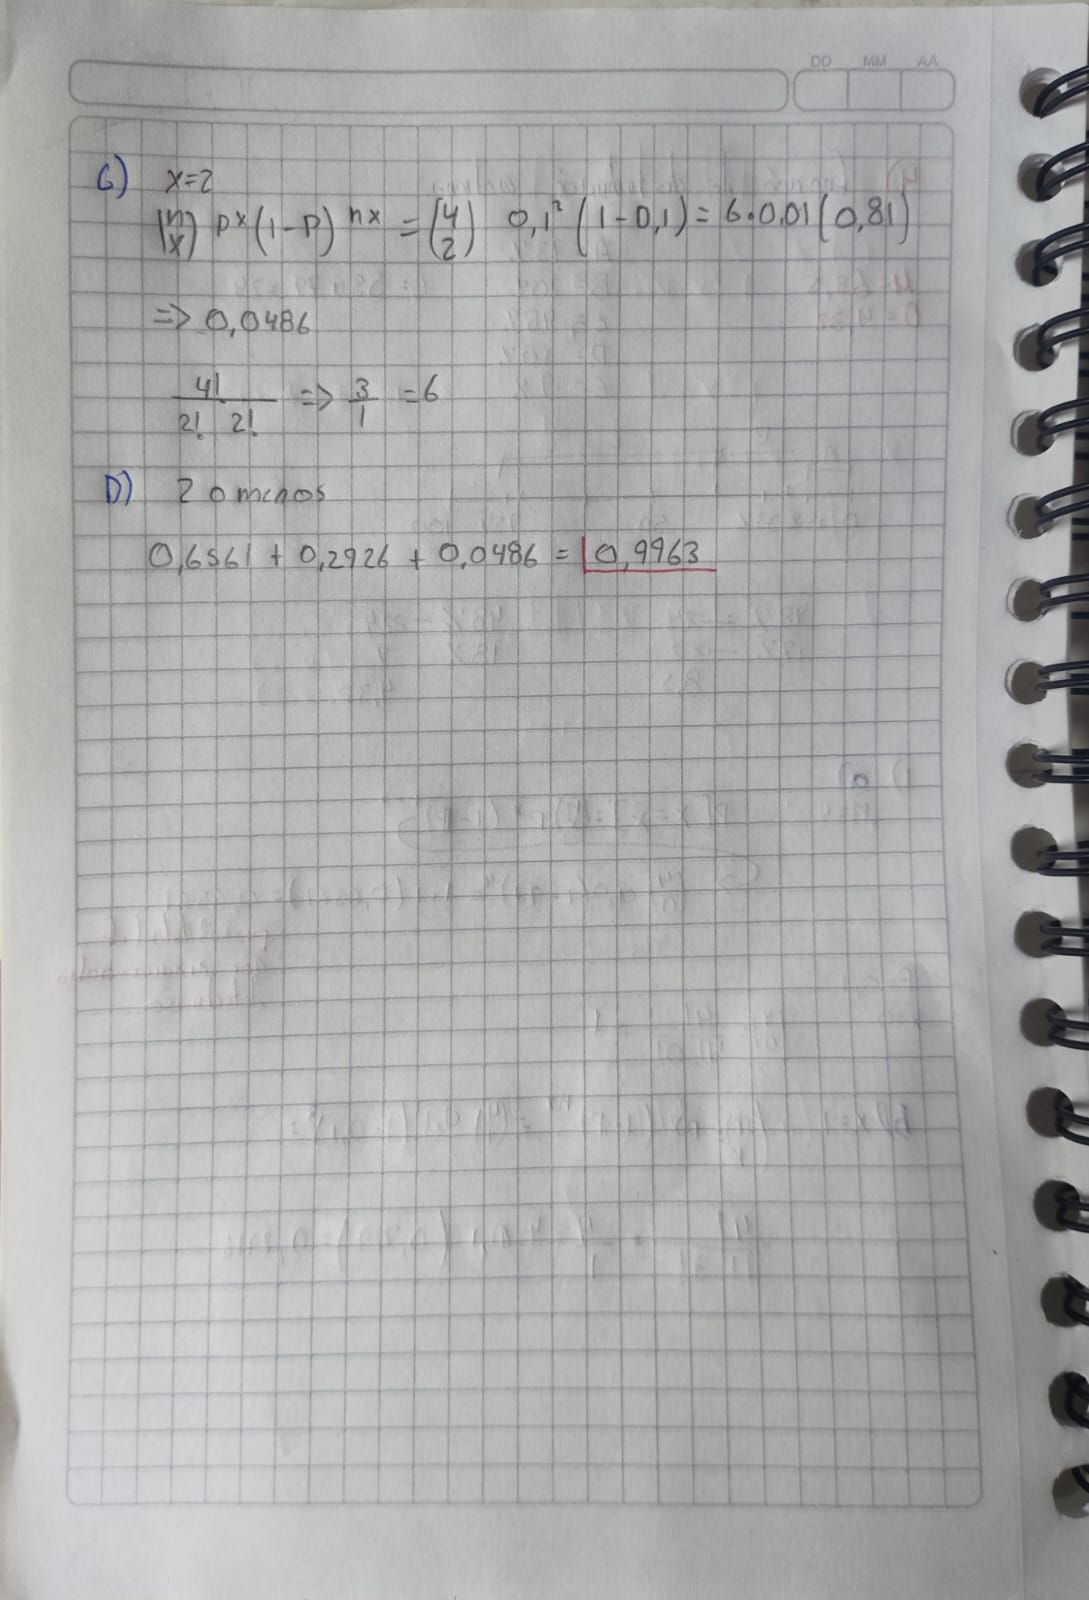 DD MM AA
C) x=2
(n x) p^x (1-p)^nx = (4 2) 0,1² (1-0,1) = 6·0,01(0,81)
=> 0,0486
4! / 2! 2! => 3/1 =6
D) 2 o menos
0,6561 + 0,2926 + 0,0486 = 0,9963